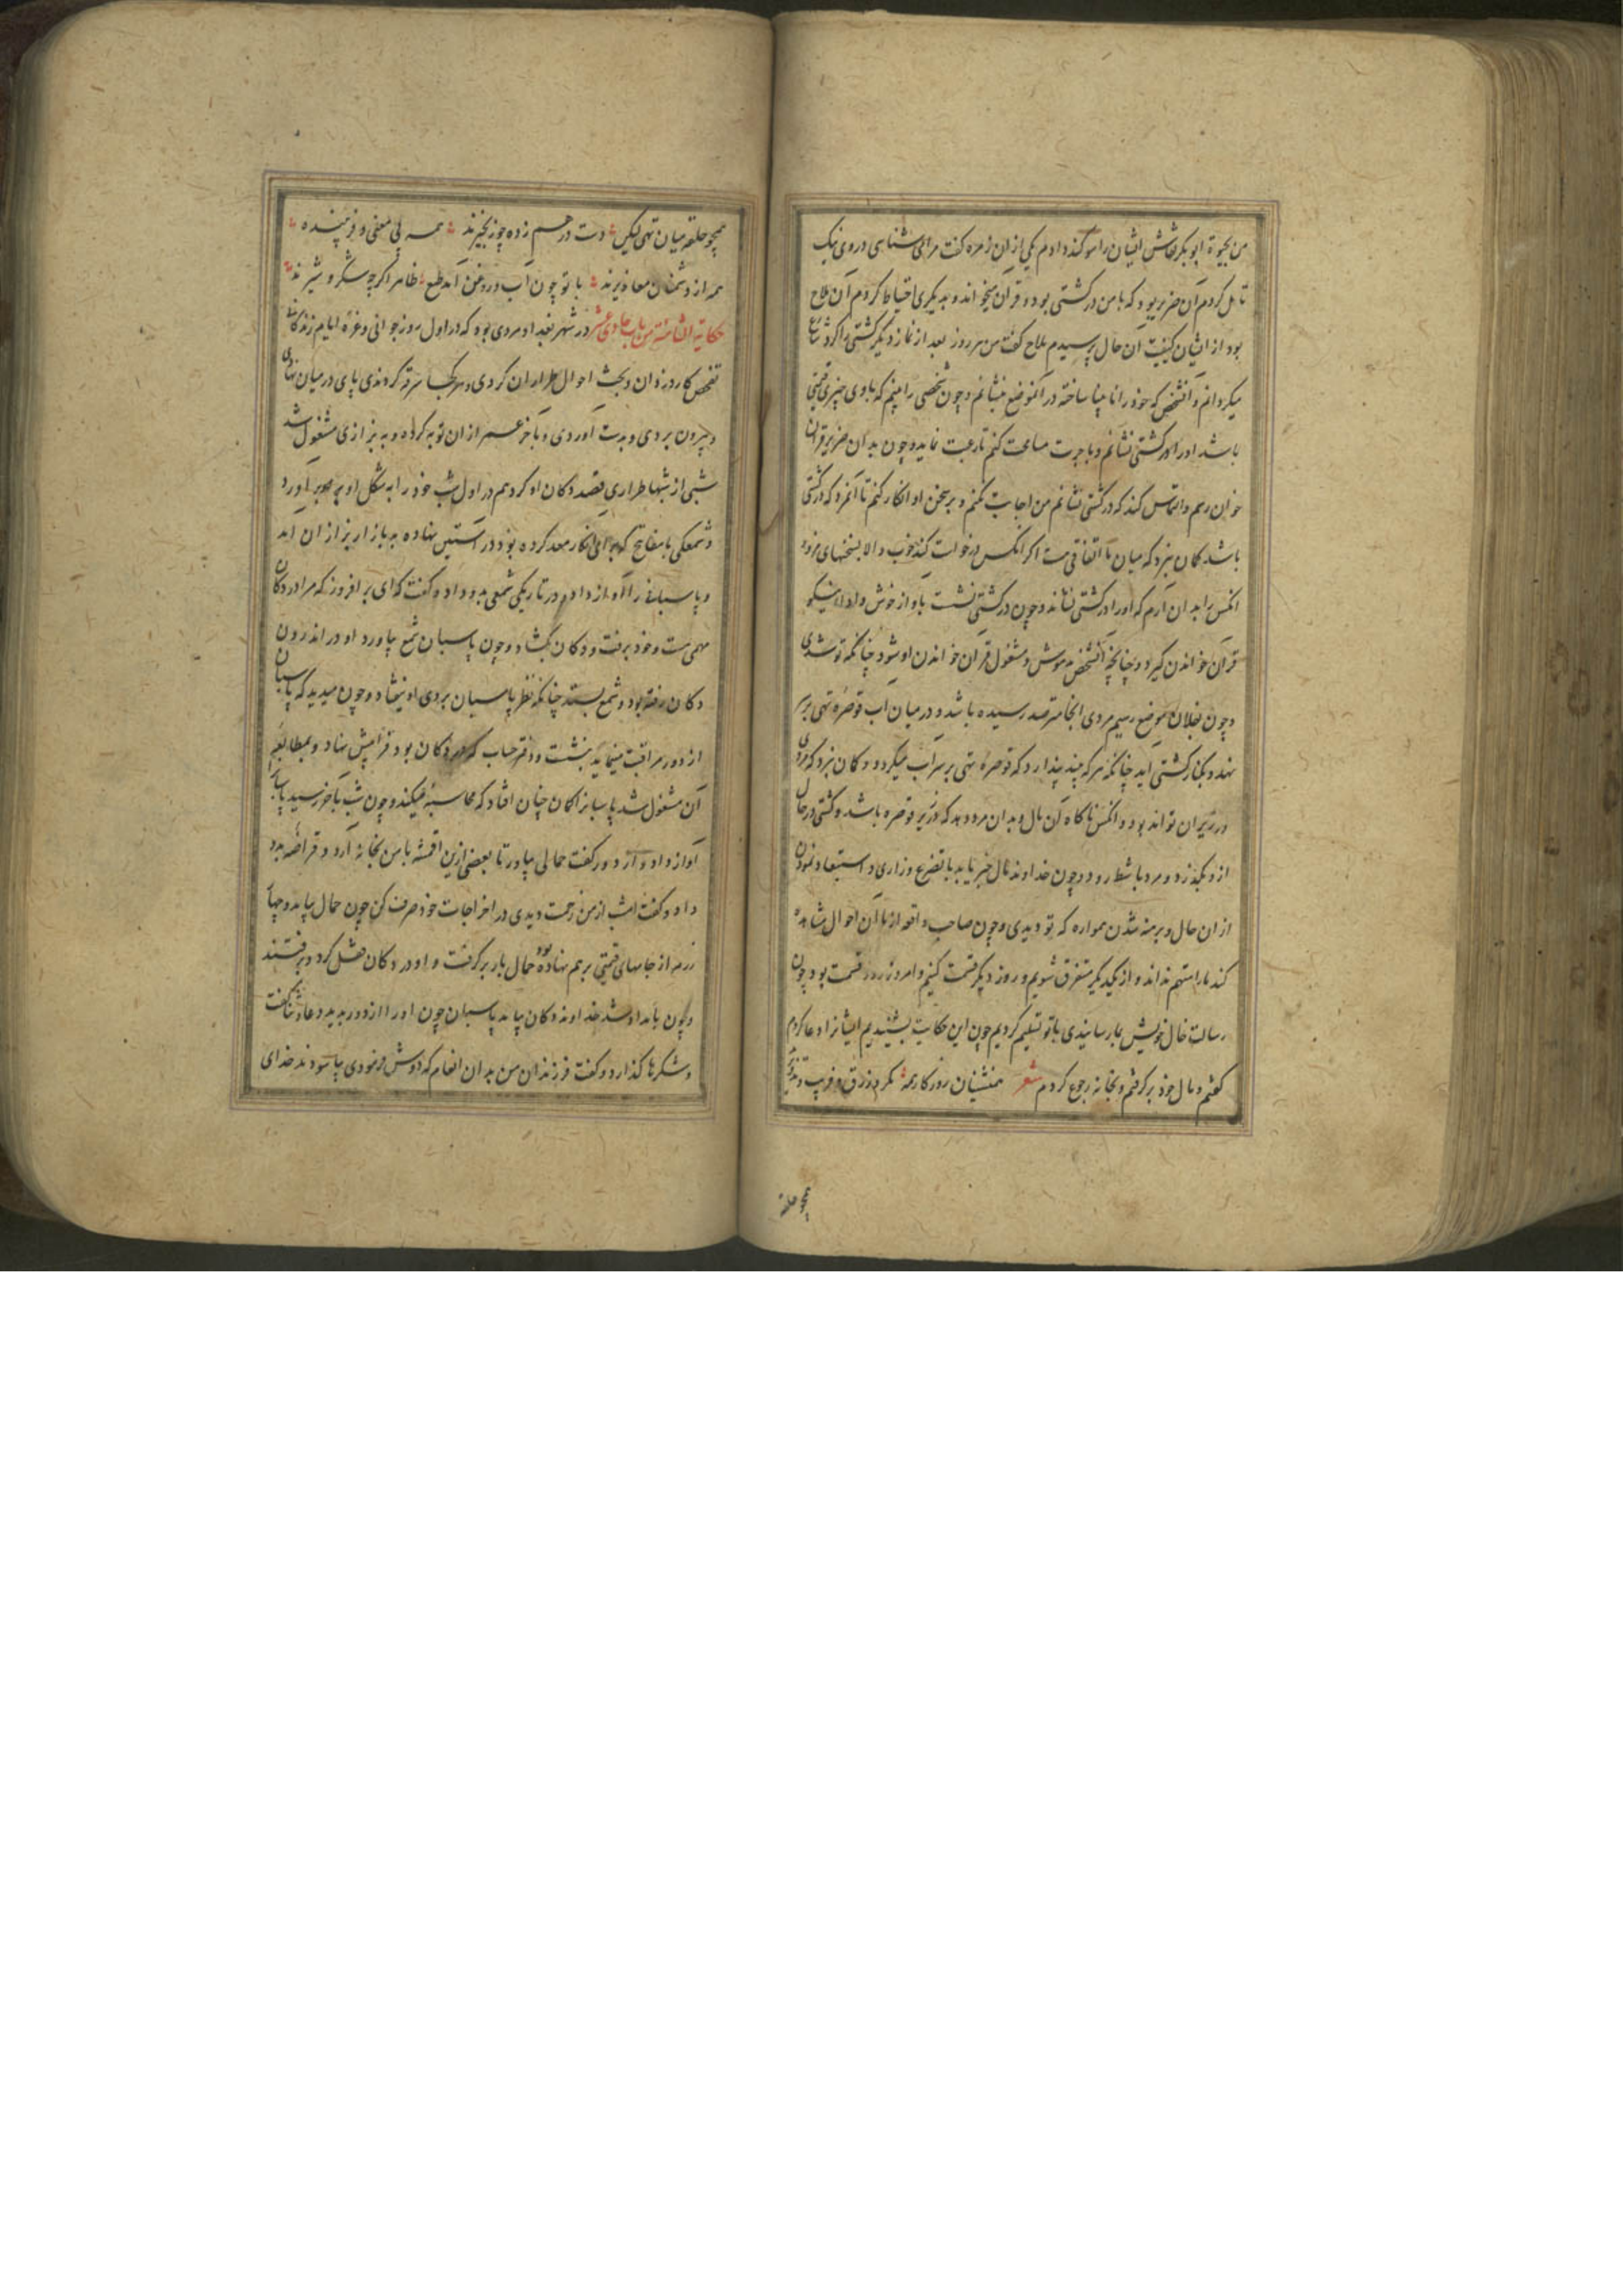 من بحیوة ابو بکر نقاش ایشان را سوکند دادم یکی از ان زمره کفت مرا می شناسی در وی نیک
تامل کردم آن ضریر بود که با من در کشتی بود و قرآن میخواند و بدیکری احتیاط کردم آن ملاح
بود از ایشان کیفیت آن حال پرسیدم ملاح کفت من هر روز بعد از نماز دیکر کشتی را کرد شارع
میکردانم و آنشخص که خود را نابینا ساخته در آنموضع بنشانم و چون شخصی را بینم که با وی چیزی قیمتی
باشد او را در کشتی نشانم و باجرت مسامحت کنم تا رغبت نماید و چون بدان ضریر قرآن
خوان رسم و التماس کند که در کشتی نشانم من اجابت نکنم و بر سخن او انکار کنم تا آنمرد که در کشتی
باشد کمان نبرد که میان ما اتفاقی هست اکر آنکس درخواست کند خوب و الا بسخنهای مزور
آنکس را بدان آرم که او را در کشتی نشاند و چون در کشتی نشست باواز خوش و اداء نیکو
قرآن خواندن کیرد و چنانچه آنشخص مدهوش و مشغول قرآن خواندن او شود چنانکه تو شدی
و چون بفلان موضع رسیم مردی آنجا مترصد رسیده باشد و در میان آب قوصره تهی بر سر
نهد و بکنار کشتی آید چنانکه هر که بیند پندارد که قوصره تهی بر سر آب میکردد و کمان نبرد که مردی
در زیر ان تواند بود و آنکس ناکاه آن مال بدان مرد دهد که در زیر قوصره باشد و کشتی در حال
ازو بکذرد و مرد با شط رود و چون خداوند مال خبر یابد با تضرع و زاری و استبعاد نمودن
از ان حال و برهنه شدن همواره که تو دیدی و چون صاحب واقعه از ما آن احوال مشاهده
کند ما را متهم نداند و از یکدیکر متفرق شویم و روز دیکر قسمت کنیم و امروز روز قسمت بود چون
رسالت خال خویش بما رسانیدی با تو تسلیم کردیم چون این حکایت بشنیدیم ایشانرا دعا کردم
کفتم و مال خود بر کرفتم و بخانه رجوع کردم شعر همنشینان روزکار همه مکر و زرق و فریب و تذویرند
همچو حلقه
همچو حلقه میان تهی لیکن دست در هم زده چو زنجیرند همه بی معنی و فریبنده
همه از دشمنان معاذیرند با تو چون آب و روغن آمد طبع ظاهر اکر چه شکر و شیرند
حکایة الثامنة من باب حادی عشر در شهر بغداد مردی بود که در اول روز جوانی و غرهٔ ایام زندکانی
تفحص کار دزدان و بحث احوال طراران کردی و هر کجا سرقه کردندی پای در میان نهادی
و بیرون بردی و بدست آوردی و بآخر عمر از ان توبه کرده و به بزازی مشغول شد
شبی از شبها طراری قصد دکان او کرد هم در اول شب خود را به شکل او بر آورد
و شمعکی با مفاتیح که برای آنکار معد کرده بود در آستین نهاده به بازار بزازان آمد
و پاسبانرا آواز داد و در تاریکی شمعی بدو داده کفت که ای بر افروز که مرا در دکان
مهمی هست و خود برفت و دکان بکشاد و چون پاسبان شمع بیاورد او در اندرون
دکان رفته بود و شمع بستد چنانکه نظر پاسبان بروی او نیفتاد و چون میدید که پاسبان
از دور مراقبت مینماید بنشست و دفتر حساب که در دکان بود فرا پیش نهاد و بمطالعه
آن مشغول شد پاسبانرا کمان چنان افتاد که محاسبه میکند و چون شب بآخر رسید پاسبانرا
آواز داد و از دور کفت حمالی بیاور تا بعضی ازین اقمشه با من بخانه آرد و قراضه بدو
داد و کفت امشب از من زحمت دیدی در اخراجات خود صرف کن چون حمال بیامد و چهار
رزمه از جامهای قیمتی بر هم نهاده بود حمال بار بر کرفت و او در دکان قفل کرد و برفتند
و چون بامداد شد خداوند دکان بیامد پاسبان چون او را از دور بدید دعا و ثنا کفت
و شکرها کذارد و کفت فرزندان من بدان انعام که دوش فرمودی بیاسودند خدای